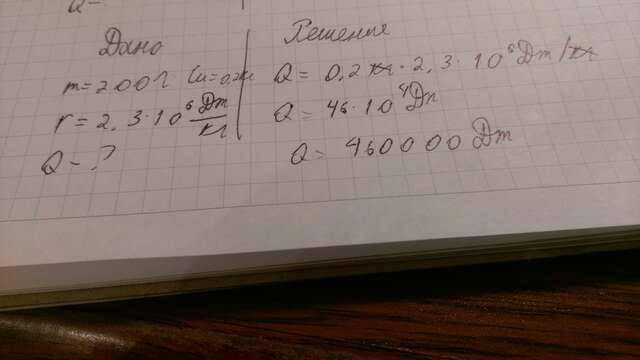 Q=
Дано
m=200г Cu=0,2кг
r=2,3·10⁶ Дж/кг
Q-?
Решение
Q=0,2кг·2,3·10⁶ Дж/кг
Q=46·10⁴ Дж
Q=460000 Дж